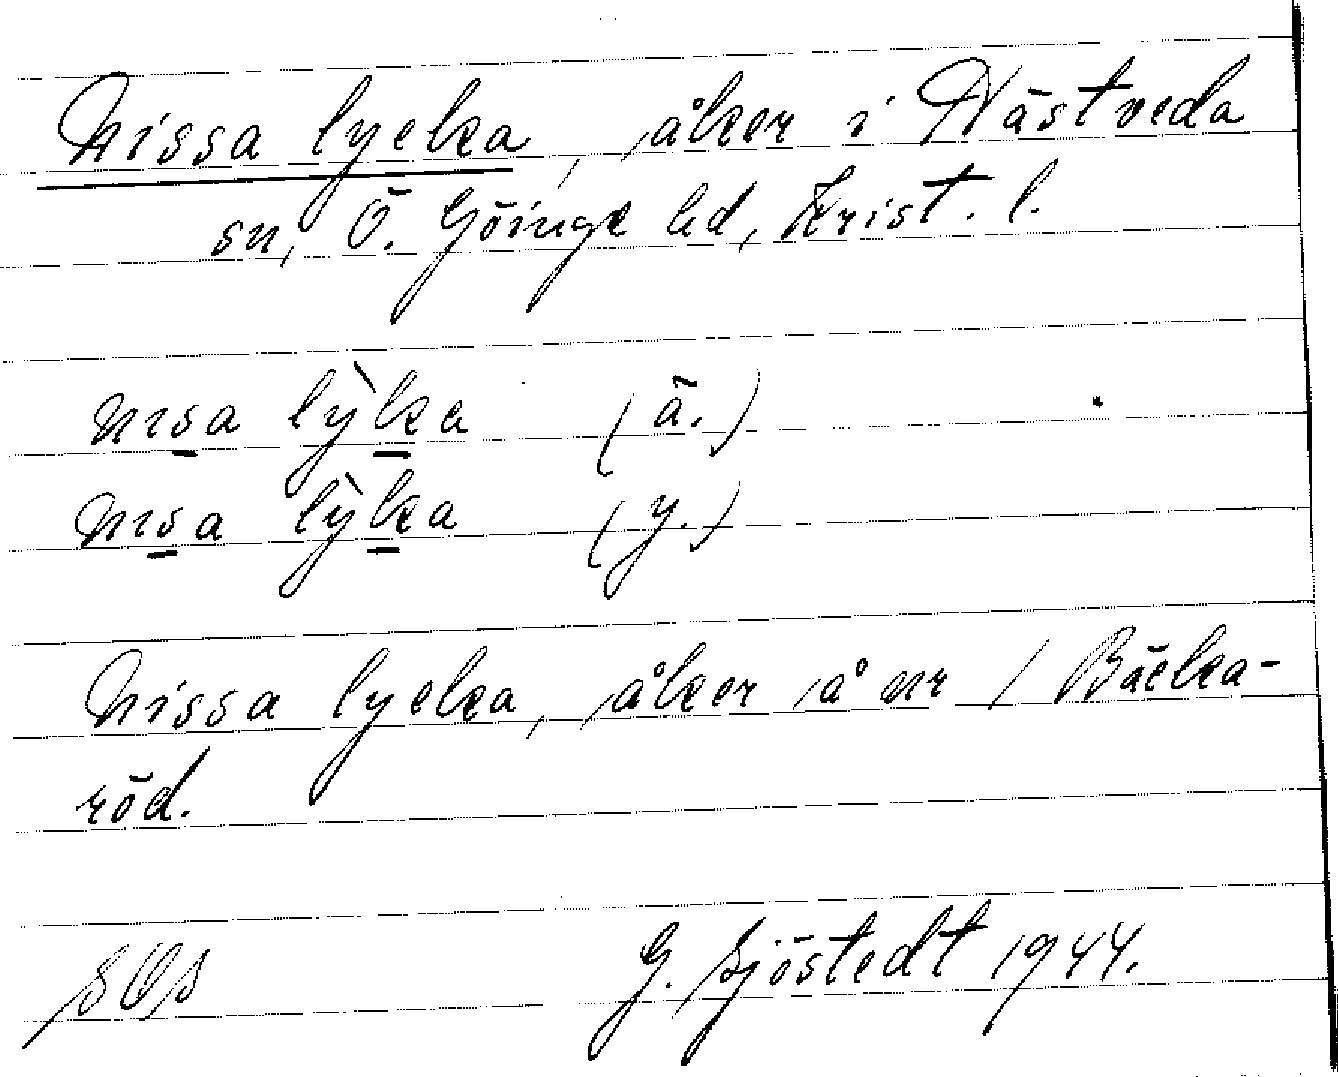 Nissa lycka, åker i Hästveda
sn, Ö. Göinge hd, Krist. l.
nısa lỳka (ä.)
nısa lỳka (y.)
Nissa lycka, åker å nr 1 Bäcka-
röd.
SOS G. Sjöstedt 1944.